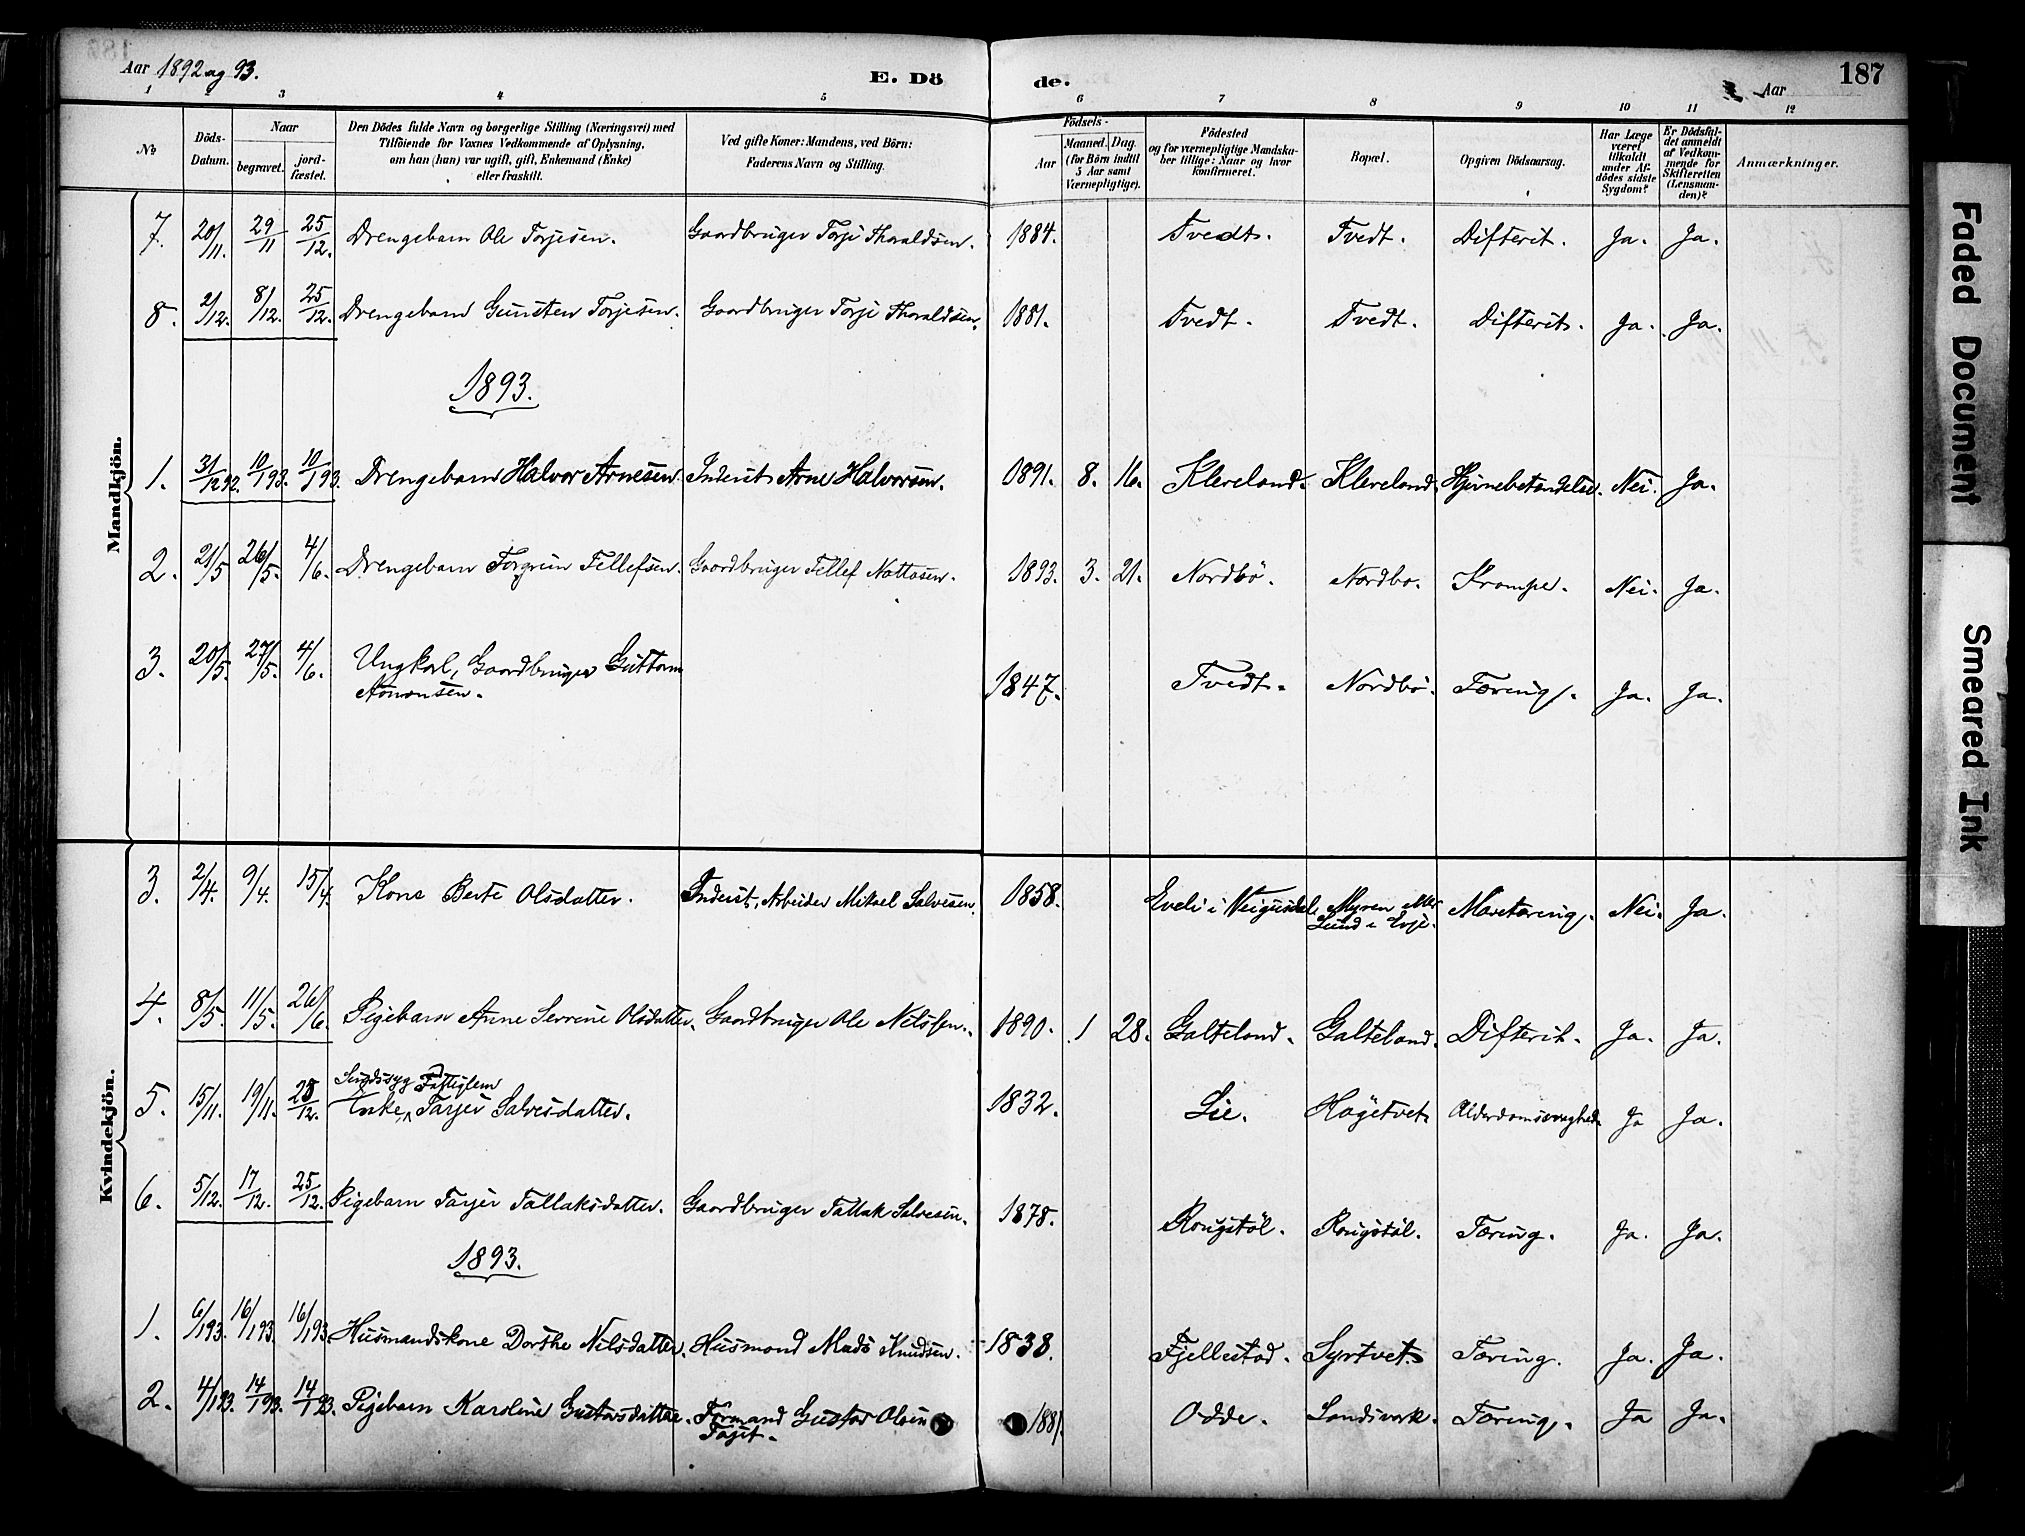 Aar 1892 og 93. E. Dö de. Aar 187
1 2 3 4 5 6 7 8 9 10 11 12
№ Döds-Datum. Naar begravet. jord-fæstet. Den Dödes fulde Navn og borgerlige Stilling (Næringsvei) med Tilföiende for Voxnes Vedkommende af Oplysning, om han (hun) var ugift, gift, Enkemand (Enke) eller fraskilt. Ved gifte Koner: Mandens, ved Börn: Faderens Navn og Stilling. Födsels- Aar Maaned. Dag. (for Börn indtil 5 Aar samt Værnepligtige). Födested og for værnepligtige Mandskaber tillige: Naar og hvor konfirmeret. Bopæl. Opgiven Dödsaarsag. Har Læge været tilkaldt under Afdödes sidste Sygdom? Er Dödsfaldet anmeldt af Vedkommende for Skifteretten (Lensmanden)? Anmærkninger.
Mandkjön.
7. 20/11. 29/11 25/12. Drengebarn Ole Torjesen. Gaardbruger Torje Thoraldsen. 1884. Tvedt. Tvedt. Difterit. Ja. Ja.
8. 2/12. 8/12. 25/12. Drengebarn Gunsten Torjesen. Gaardbruger Torje Thoraldsen. 1881. Tvedt. Tvedt. Difterit. Ja. Ja.
1893.
1. 31/12 92. 10/1 93. 10/1 93. Drengebarn Halvor Arnesen. Inderst Arne Halvorsen. 1891. 8. 16. Kleveland. Kleveland. Hjernebetændelse. Nei. Ja.
2. 21/5 26/5. 4/6. Drengebarn Torgrim Tellefsen. Gaardbruger Tellef Nottosen. 1893. 3. 21. Nordbö. Nordbø. Krampe. Nei. Ja.
3. 20/5. 27/5. 4/6. Ungkarl, Gaardbruger Guttorm 1847. Tvedt. Nordbö. Tæring. Ja. Ja.
Aanonsen.
Kvindekjön.
3. 2/4. 9/4. 15/4. Kone Berte Olsdatter. Inderst, Arbeider Mikael Salvesen. 1858. i Myren Nei. Ja.
i Evje.
4. 8/5. 11/5. 26/6. Pigebarn Anne Serine Olsdatter. Gaardbruger Ole Nilssen. 1890. 1 28. Galteland. Galteland. Difterit. Ja. Ja.
Sindssyg Fattiglem
5. 15/11. 19/11. 25/12. Enke, Tarjer Salvesdatter. 1832. Lie. Högetvet. Alderdomssvaghed. Ja Ja.
6. 5/12. 17/12. 25/12. Pigebarn Tarjer Tallaksdatter. Gaardbruger Tallak Salvesen. 1878. Rougstöl. Rougstöl. Tæring. Ja. Ja.
1893.
1. 6/1 93. 16/1 93. 16/1 93. Husmandskone Dorthe Nilsdatter. Husmand Mads Knudsen. 1838. Fjellestad. Syrtvet. Tæring. Ja. Ja.
2. 4/1 93. 14/1 93. 14/1 93. Pigebarn Karoline Gustavsdatter. Formand Gustav Olsen 1881. Odde. Landsverk. Tæring. Ja Ja.
Faded Document
Smeared Ink